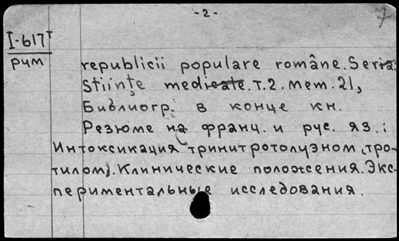 - 2 -
7
I-617
рум
republicii populare române. Seria
Stiinţe medicale. T. 2. mem. 21,
Библиогр. в конце кн.
Резюме на франц. и рус. яз.:
Интоксикация тринитротолуэном (тро-
тилом). Клинические положения. Экс-
периментальные исследования.